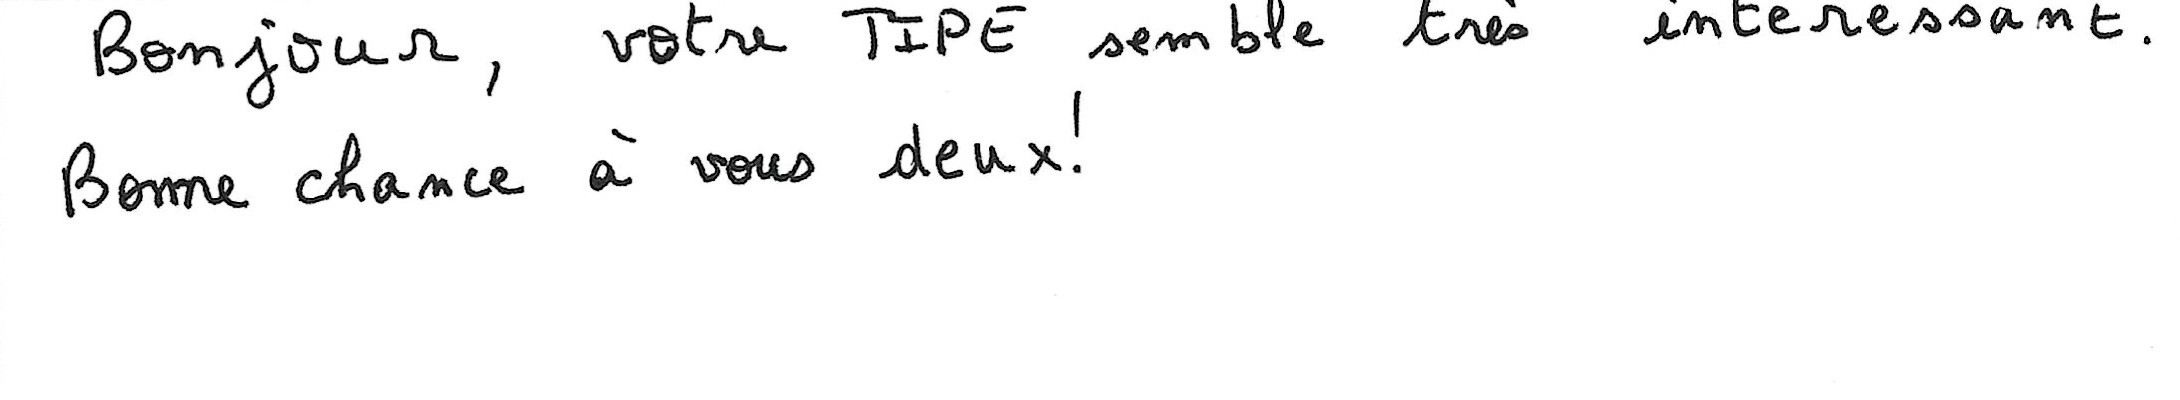 Bonjour, votre TIPE semble très interessant.
Bonne chance à vous deux!